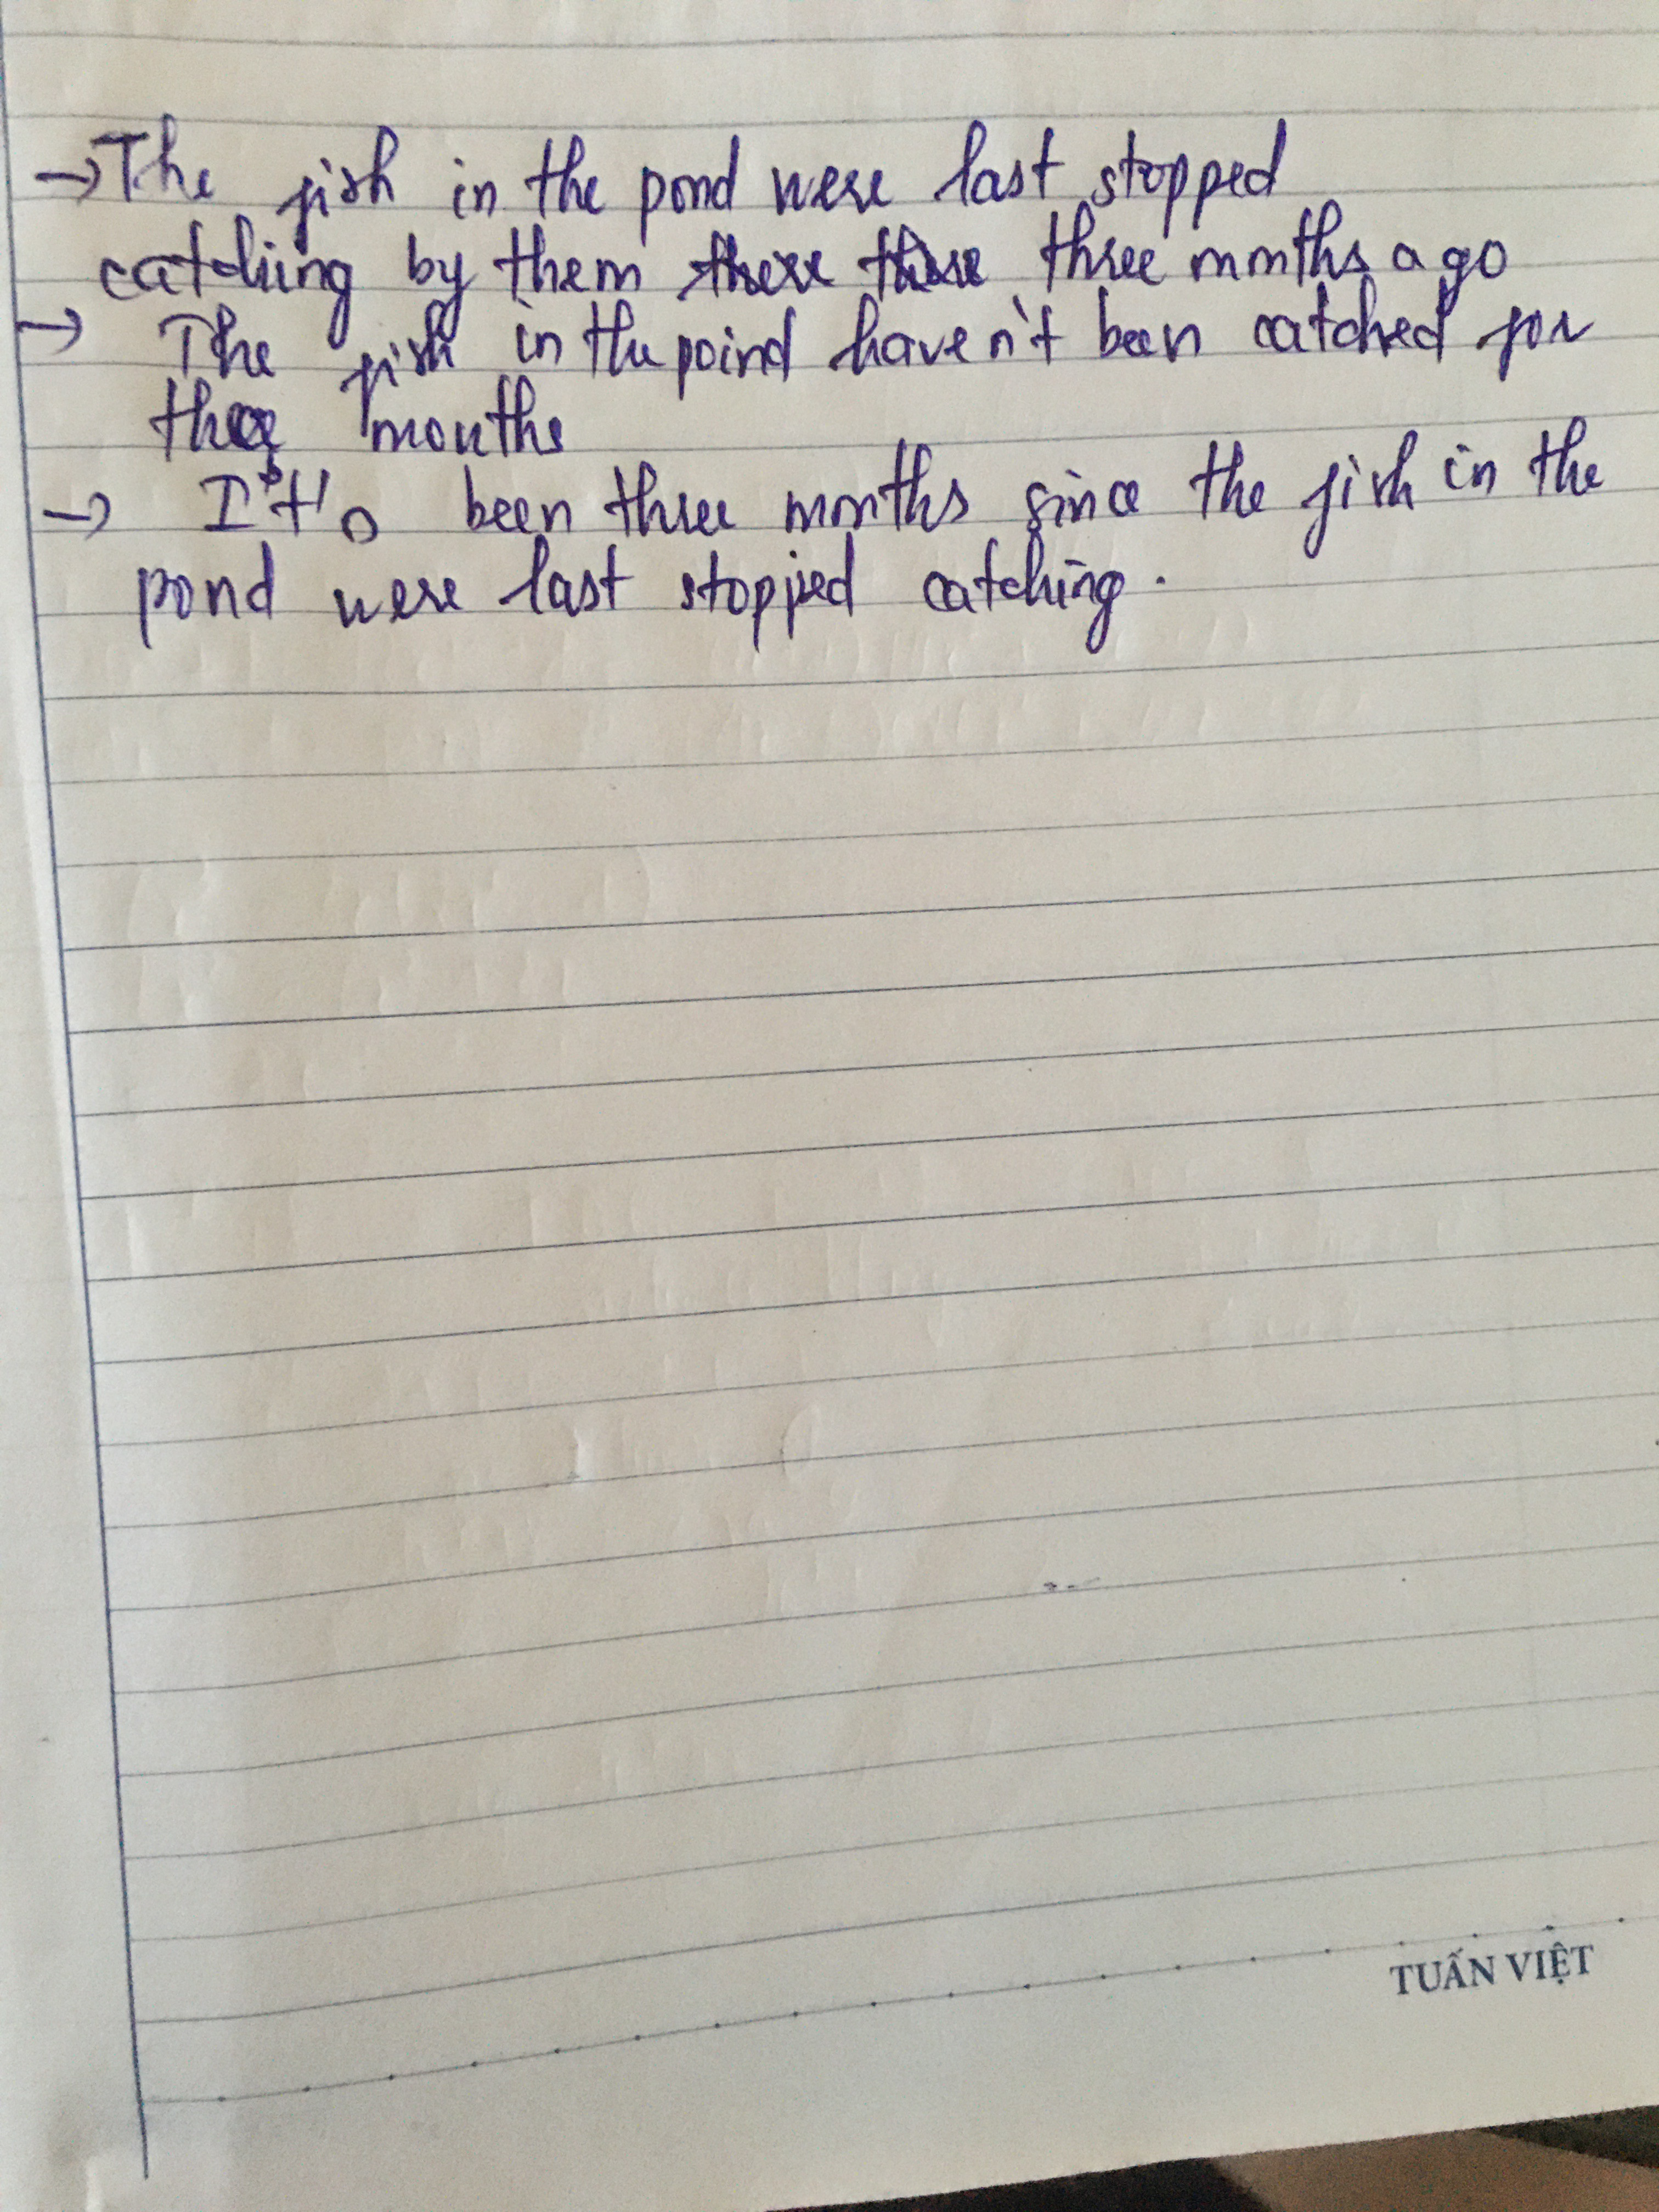 → The fish in the pond were last stopped
catching by them three months ago
→ The fish in the poind haven't been catched for
months
→ It's been three months since the fish in the
pond were last stopped catching.
TUẤN VIỆT